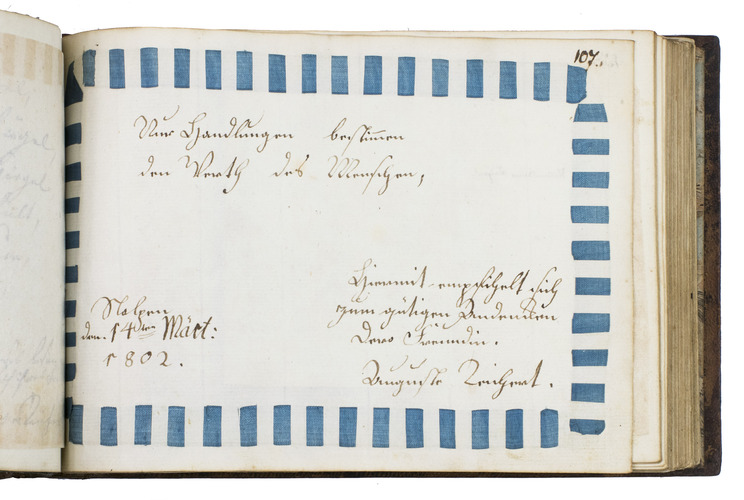 107.
Nur Handlungen bestim̅en
den Werth des Menschen,
Hiermit empfihelt sich
zum gütigen Andencken
Dero Freundin.
Auguste Reichert.
Stolpen
den. 14ten Märt:
1802.